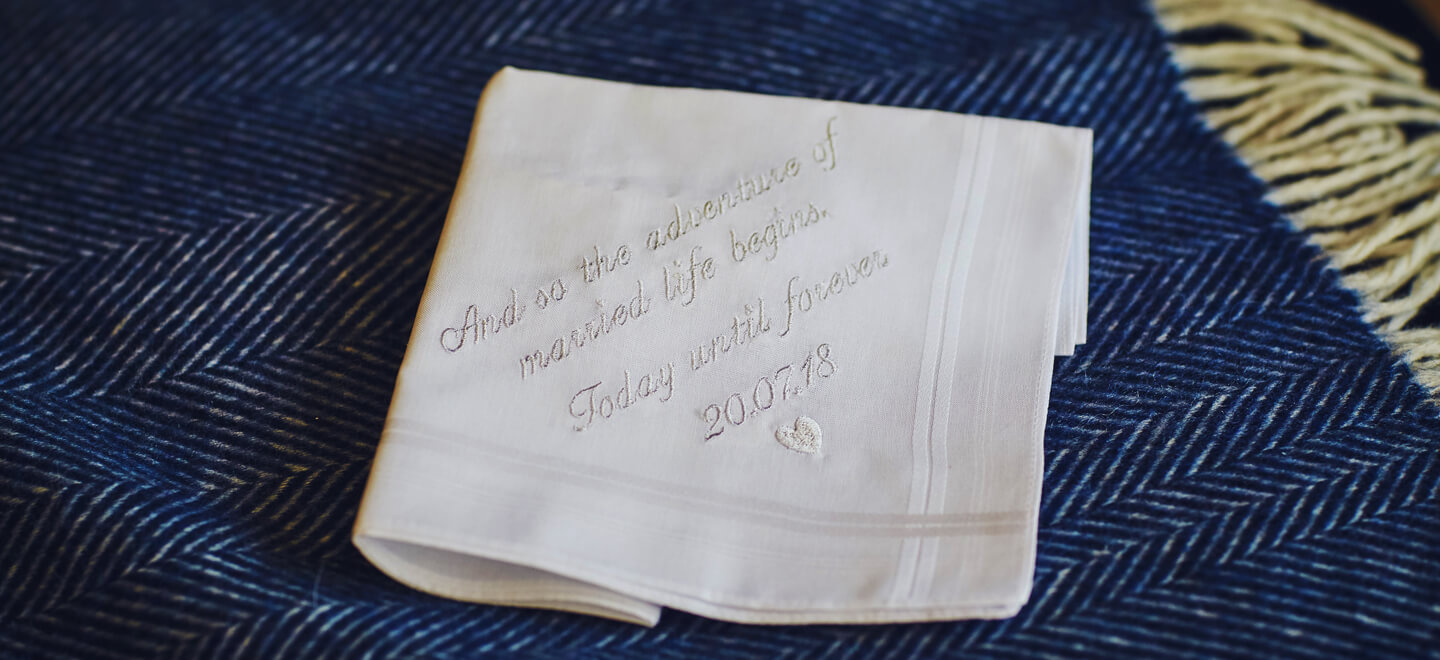 And so the adventure of
married life begins.
Today until forever
20.07.18